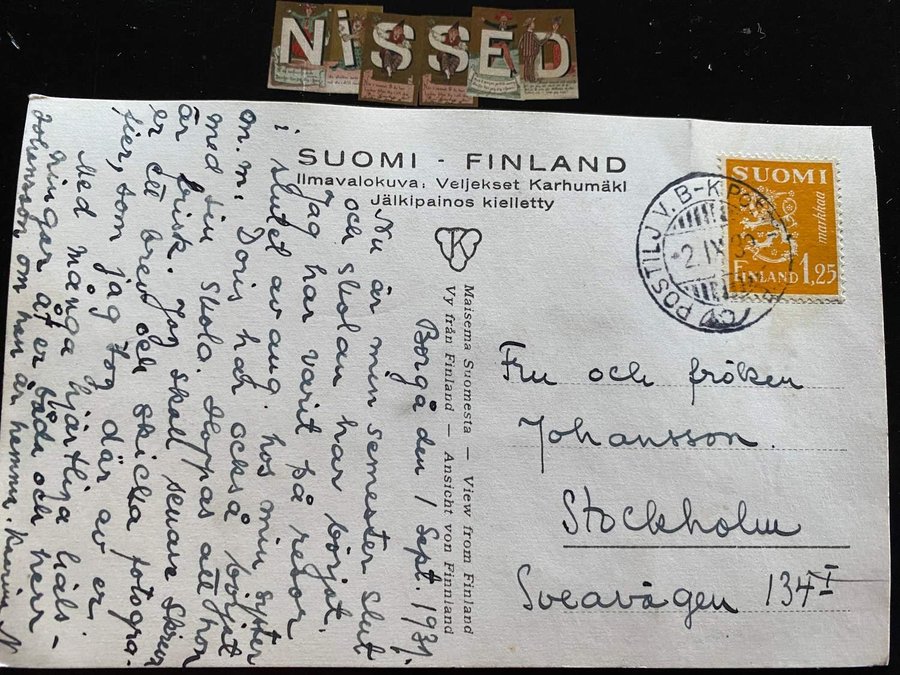 NISSED
SUOMI - FINLAND
Ilmavalokuva: Veljekset Karhumäki
Jälkipainos kielletty
K
SUOMI
markkaa
FINLAND 1,25
POSTILJ.V. B-K POST
2.IX
Maisema Suomesta — View from Finland
Vy från Finland — Ansicht von Finnland
Borgå den 1 Sept. 1937.
Nu är min semester slut
och skolan har börjat.
Jag har varit på resor
i slutet av aug. hos min syster
m. m. Doris har också börjat
med sin skola. Hoppas att hon
är frisk. Jag skall senare skriva
er ett brev och skicka fotogra-
fier, som jag tog där av er.
Med många hjärtliga häls-
ningar åt er båda och herr
Johansson om han är hemma. Karin N
Fru och fröken
Johansson.
Stockholm
Sveavägen 134 I